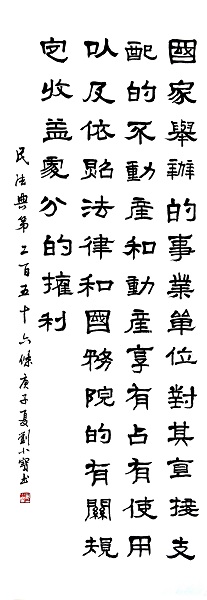 國家舉辦的事業單位對其直接支
配的不動產和動產享有占有使用
以及依照法律和國務院的有關規
定收益處分的權利
民法典第二百五十六條庚子夏劉小寶書